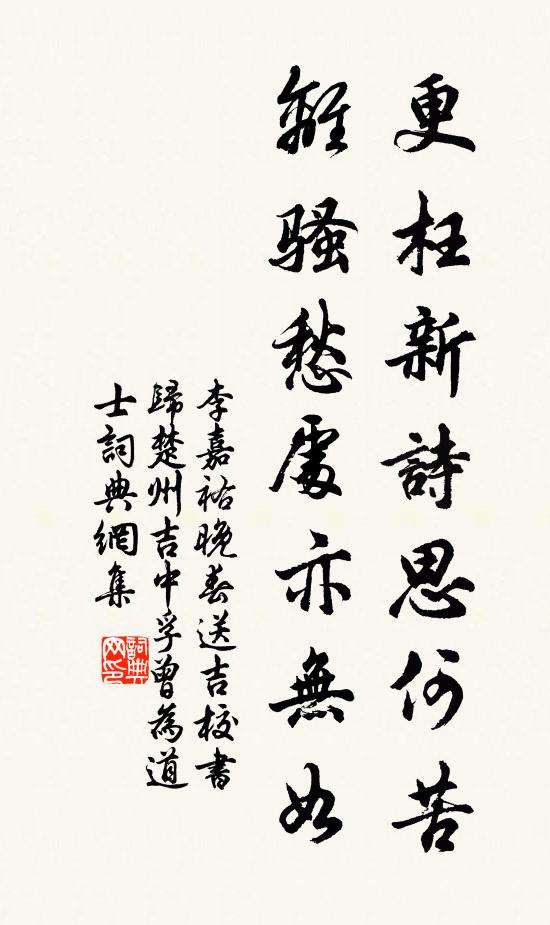 更枉新詩思何苦
離騷愁處亦無如
李嘉祐晚春送吉校書
歸楚州吉中孚曾為道
士詞典網集
詞典网印